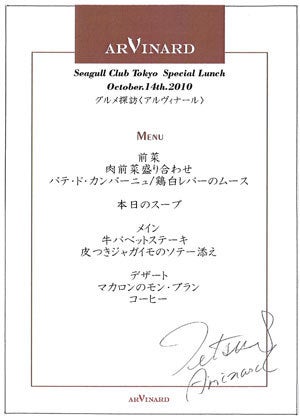 ARVINARD
Seagull Club Tokyo Special Lunch
October.14th.2010
グルメ探訪〈アルヴィナール〉
MENU
前菜
肉前菜盛り合わせ
パテ・ド・カンパーニュ/鶏白レバーのムース
本日のスープ
メイン
牛バベットステーキ
皮つきジャガイモのソテー添え
デザート
マカロンのモン・ブラン
コーヒー
ARVINARD